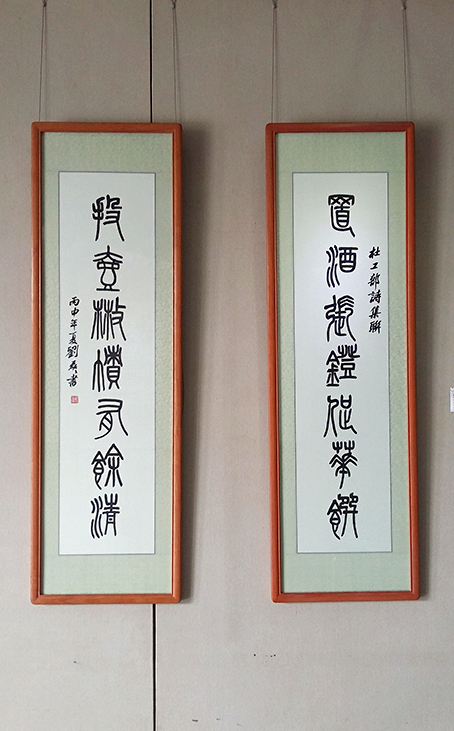 置酒張鐙促華饌
杜工部詩集聯
投壺散帙有餘清
丙申年夏劉書